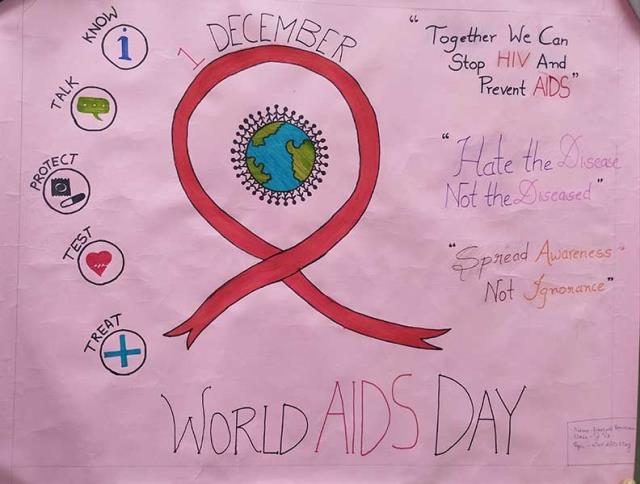 KNOW
TALK
PROTECT
TEST
TREAT
i
1 DECEMBER
"Together We Can
Stop HIV And
Prevent AIDS"
"Hate the Disease
Not the Diseased"
"Spread Awareness
Not Ignorance"
WORLD AIDS DAY